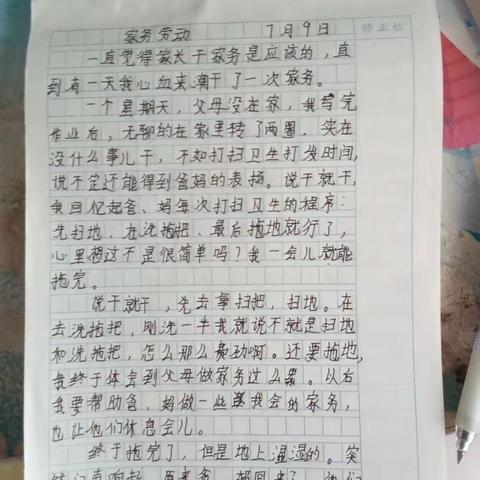 家务劳动 7月9日
修正栏
一直觉得家长干家务是应该的，直
到有一天我心血来潮干了一次家务。
一个星期天，父母没在家，我写完
作业后，无聊的在家里转了两圈，实在
没什么事儿干，不如打扫卫生打发时间，
说不定还能得到爸妈的表扬。说干就干，
我回忆起爸、妈每次打扫卫生的程序：
先扫地、在洗拖把、最后拖地就行了，
心里想这不是很简单吗？我一会儿就能
拖完。
说干就干，先去拿扫把，扫地。在
去洗拖把，刚洗一半我就说不就是扫地
和洗拖把，怎么那么费劲啊。还要拖地，
我终于体会到父母做家务这么累。以后
我要帮助爸、妈做一些我会的家务，
也让他们休息会儿。
终于拖完了，但是地上湿湿的。突